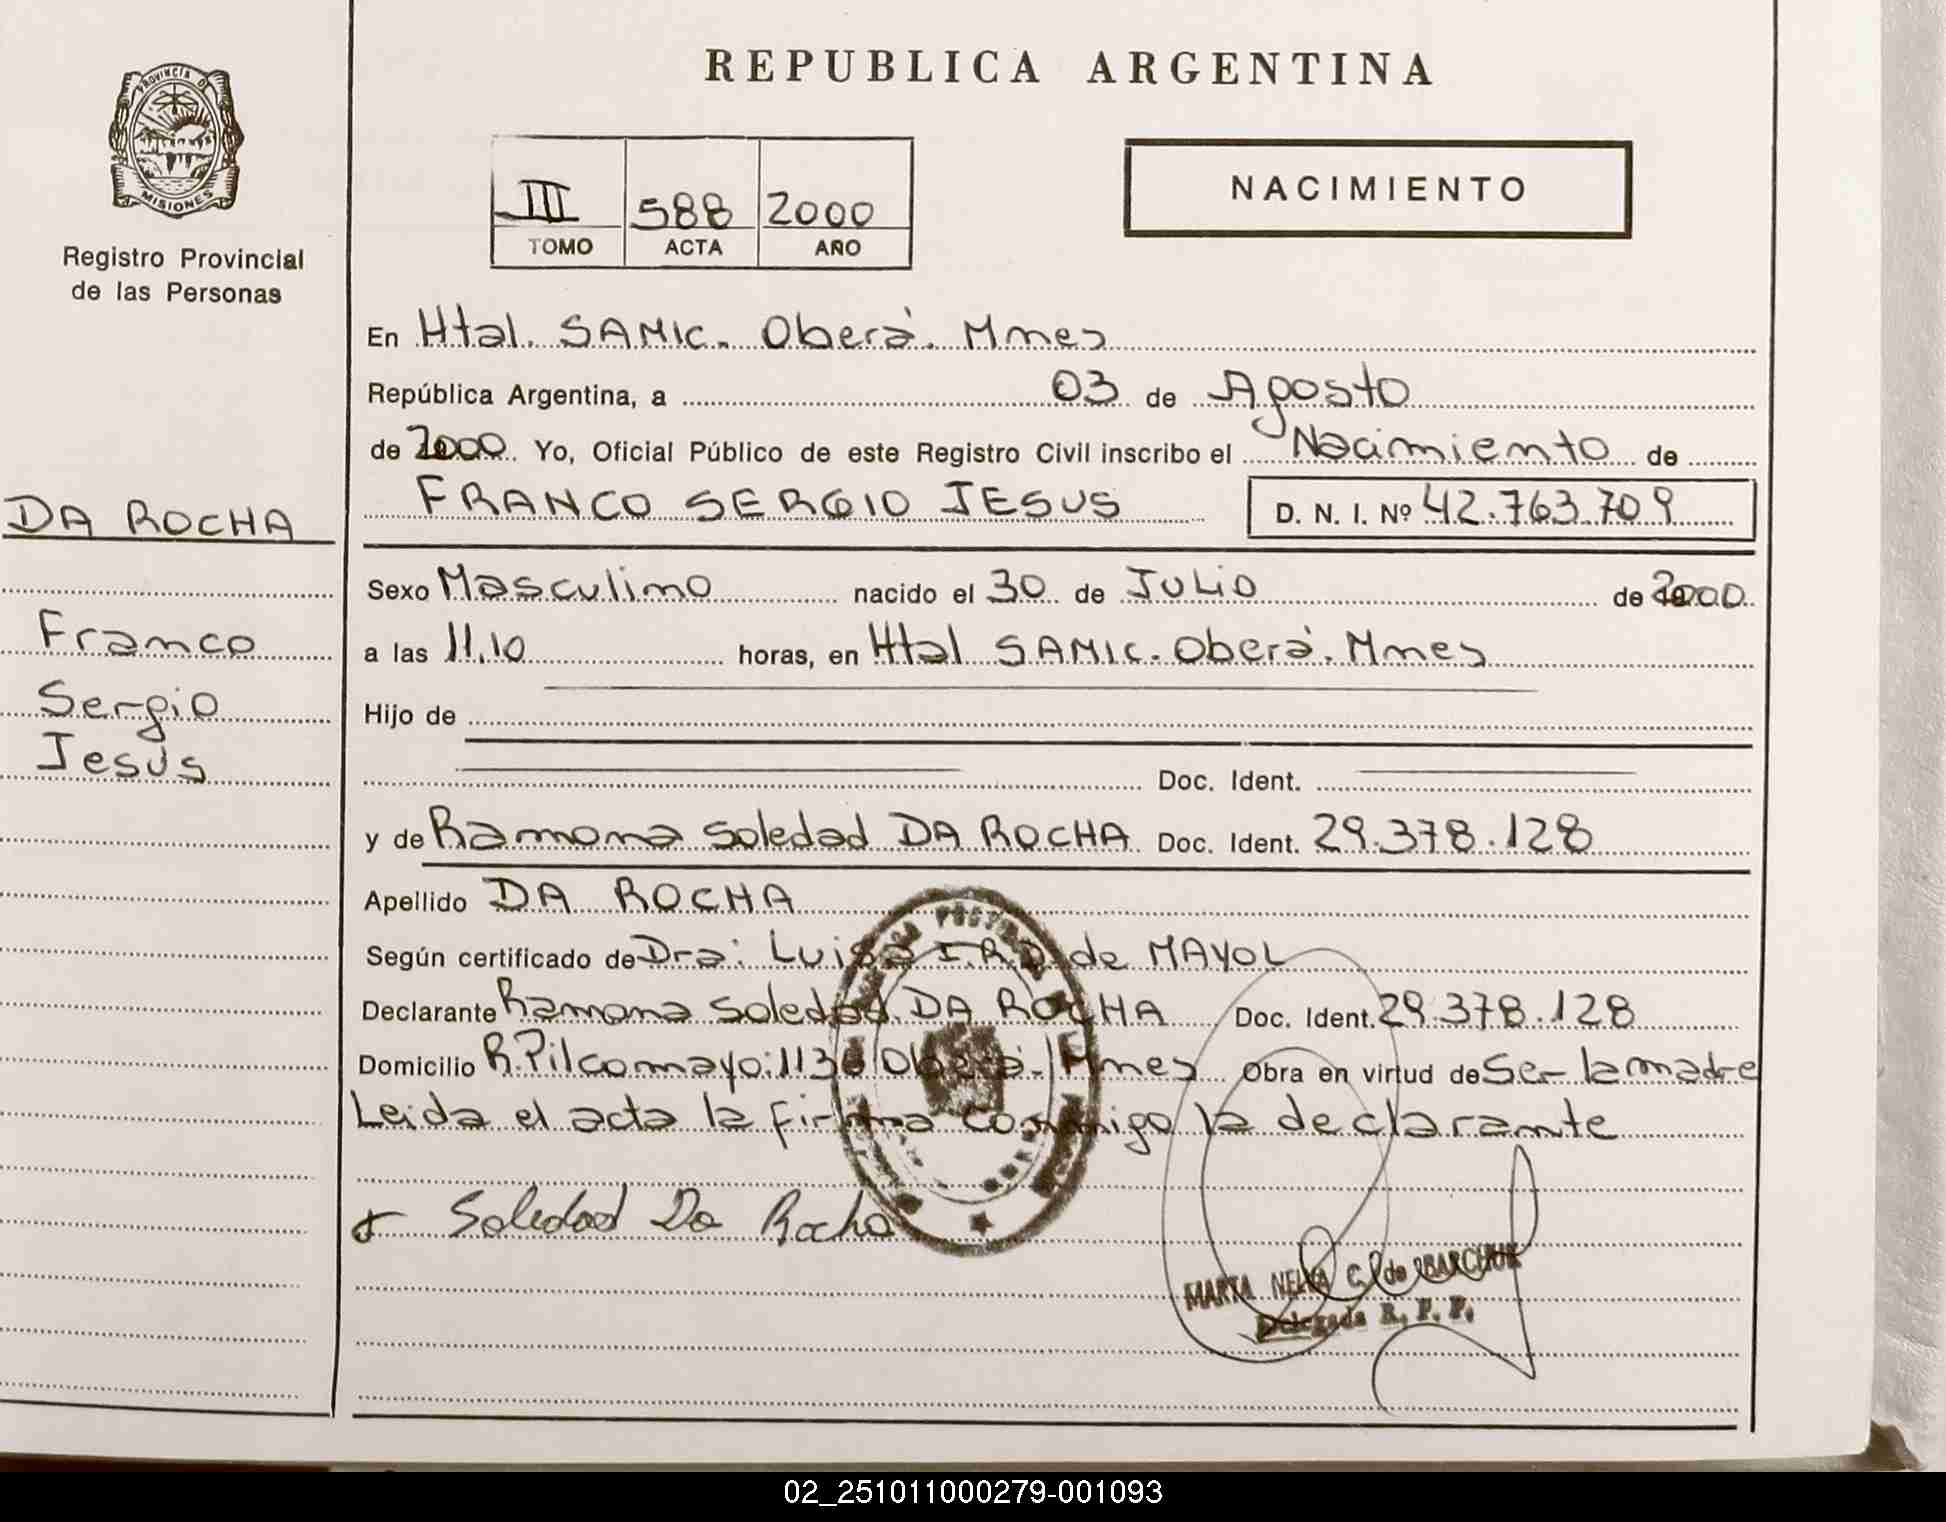 PROVINCIA DE
MISIONES
Registro Provincial
de las Personas
DA ROCHA
Franco
Sergio
Jesús
REPUBLICA ARGENTINA
III 588 2000
TOMO ACTA AÑO
NACIMIENTO
En Htal. SAMIC. Oberá. Mnes
República Argentina, a 03 de Agosto
de 2000 Yo, Oficial Público de este Registro Civil inscribo el Nacimiento de
FRANCO SERGIO JESUS D. N. I. Nº 42.763.709
Sexo Masculino nacido el 30 de JULIO de 2000
a las 11,10 horas, en Htal SAMIC. Oberá. Mnes
Hijo de
Doc. Ident.
y de Ramona Soledad DA ROCHA Doc. Ident. 29.378.128
Apellido DA ROCHA
Según certificado de Dra: Luisa I.R.D. de MAYOL
Declarante Ramona Soledad DA ROCHA Doc. Ident. 29.378.128
Domicilio R. Pilcomayo: 1136 Oberá. Mnes Obra en virtud de Ser la madre
Leida el acta la firma conmigo la declarante
Soledad Da Rocha
MARTA C. de
Delegada R. P. P.
02_251011000279-001093